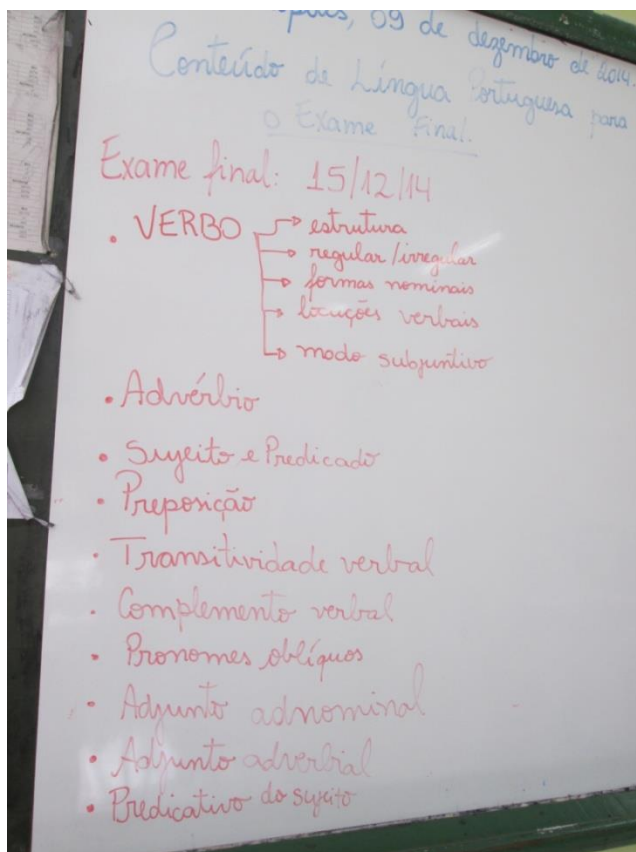 09 de dezembro de 2014.
Conteúdo de Língua Portuguesa para
o Exame Final.
Exame final: 15/12/14
• VERBO → estrutura
→ regular/irregular
→ formas nominais
→ locuções verbais
→ modo subjuntivo
• Advérbio
• Sujeito e Predicado
• Preposição
• Transitividade verbal
• Complemento verbal
• Pronomes oblíquos
• Adjunto adnominal
• Adjunto adverbial
• Predicativo do sujeito